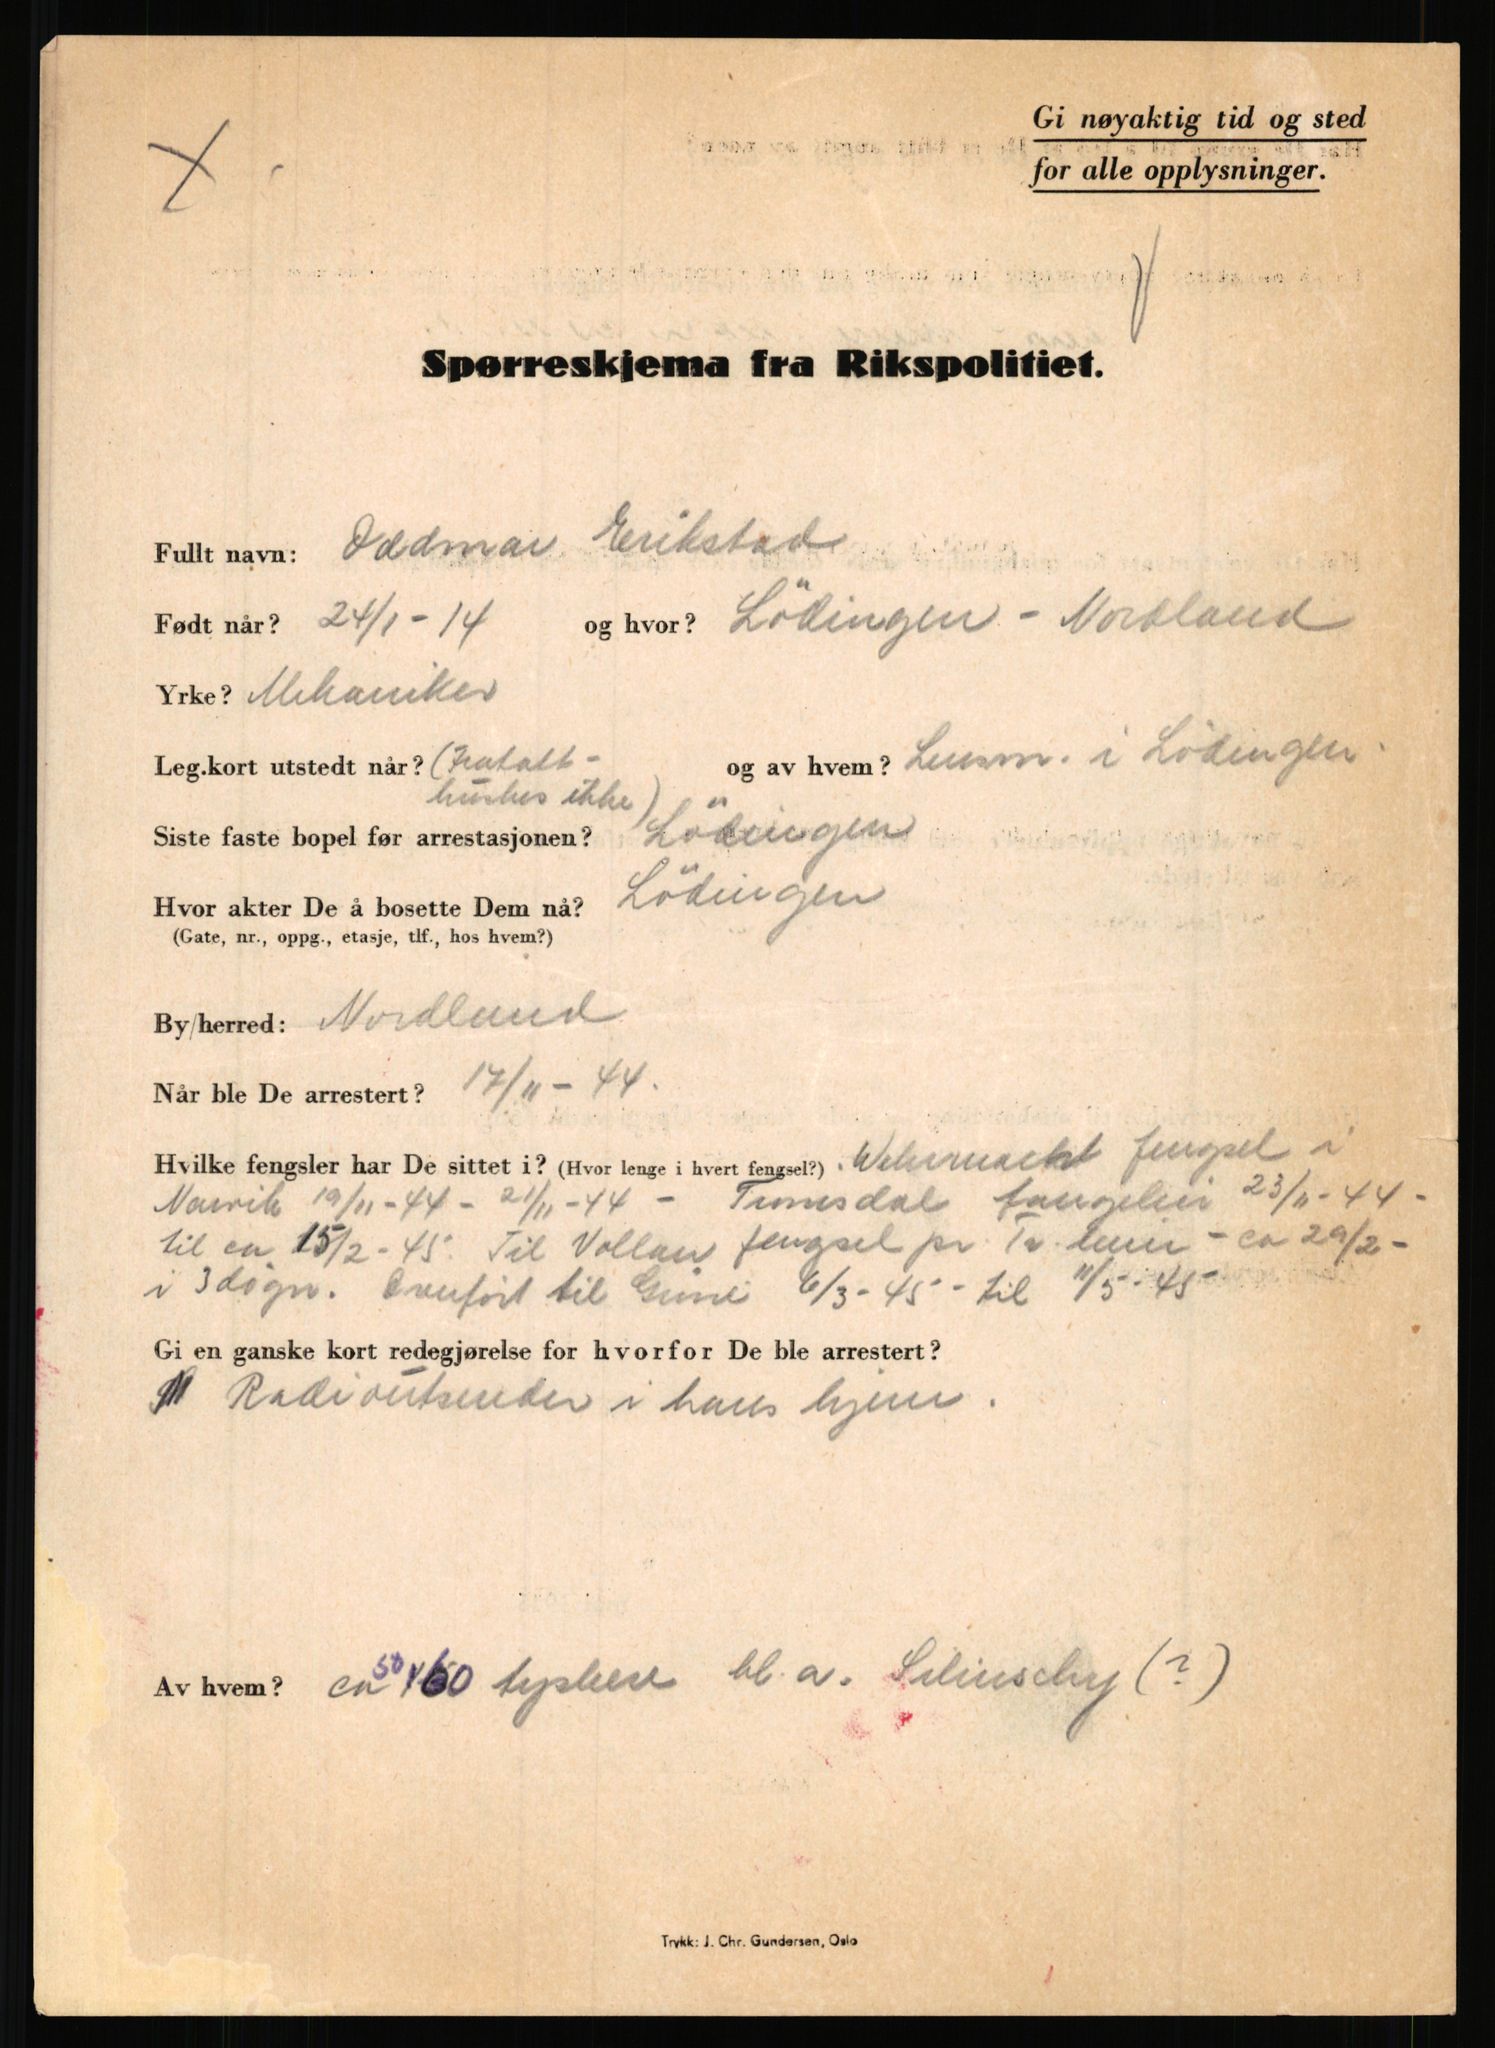 Gi nøyaktig tid og sted
for alle opplysninger.
Spørreskjema fra Rikspolitiet.
Fullt navn: Oddmar Erikstad
Født når? 24/1 - 14 og hvor? Lödingen - Nordland
Yrke? Mekaniker
Leg.kort utstedt når? (Fratatt - og av hvem? Lensm. i Lödingen.
huskes ikke)
Siste faste bopel før arrestasjonen? Lödingen
Hvor akter De å bosette Dem nå? Lödingen
(Gate, nr., oppg., etasje, tlf., hos hvem?)
By/herred: Nordland
Når ble De arrestert? 17/11 - 44.
Hvilke fengsler har De sittet i? (Hvor lenge i hvert fengsel?). Wehrmacht fengsel i
Narvik 19/11-44 - 21/11-44 - Tromsdal fangeleir 23/11-44 -
til ca 15/2-45. Til Vollan fengsel pr. Tr. leir - ca 29/2 -
i 3 døgn. Overfört til Grini 6/3-45 - til 11/5-45
Gi en ganske kort redegjørelse for hvorfor De ble arrestert?
Radioutsender i hans hjem.
Av hvem? ca 50 tyskere bl. a. (?)
Trykk: J. Chr. Gundersen, Oslo